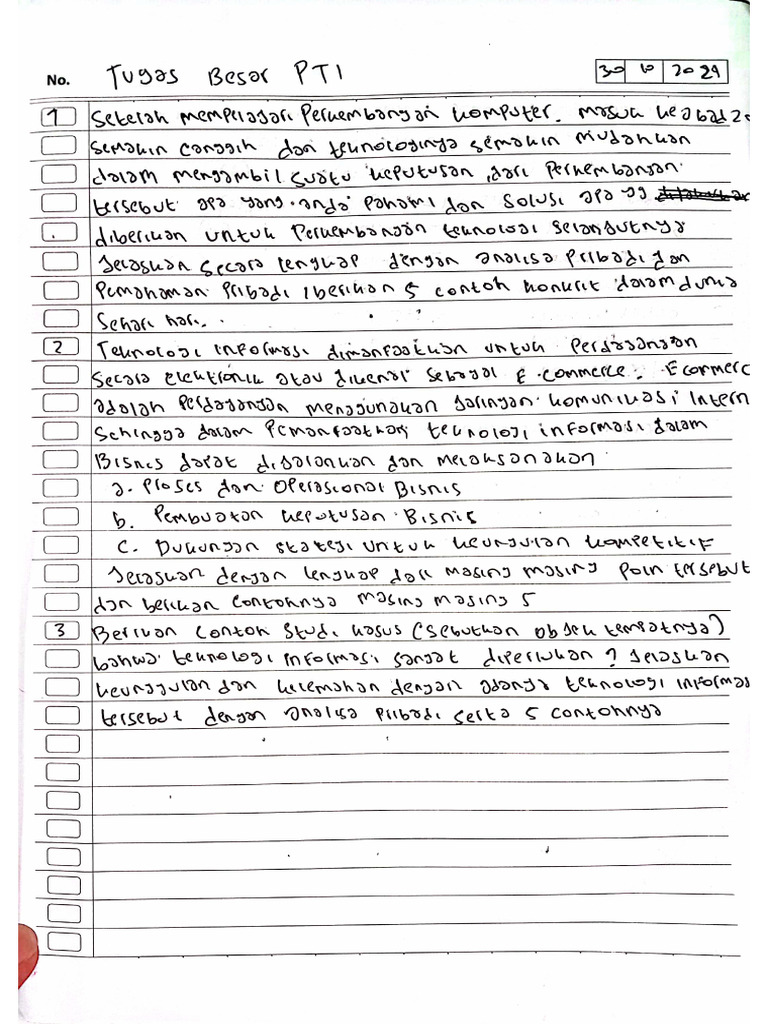 No. Tugas Besar PTI 30 10 2024
1 Setelah mempelajari Perkembangan komputer. masuk ke abad 20
semakin canggih dan teknologinya semakin mudahkan
dalam mengambil suatu keputusan, dari Perkembangan
tersebut apa yang anda Pahami dan solusi apa yg
diberikan untuk Perkembangan teknologi selanjutnya
Jelaskan secara lengkap dengan analisa Pribadi dan
Pemahaman Pribadi, berikan 5 contoh konkrit dalam dunia
Sehari hari.
2 Teknologi informasi dimanfaatkan untuk Perdagangan
Secara elektronik atau dikenal sebagai E-commerce. Ecommerc
adalah Perdagangan menggunakan Jaringan komunikasi Intern
Sehingga dalam Pemanfaatkan teknologi informasi dalam
Bisnis dapat dijalankan dan melaksanakan
a. Proses dan Operasional Bisnis
b. Pembuatan keputusan Bisnis
c. Dukungan stategi untuk keunggulan kompetitif
Jelaskan dengan lengkap dari masing masing Poin tersebut
dan berikan contohnya masing masing 5
3 Berikan contoh studi kasus (sebutkan objek tempatnya)
bahwa teknologi informasi sangat diperlukan? Jelaskan
keunggulan dan kelemahan dengan adanya teknologi informas
tersebut dengan analisa pribadi serta 5 contohnya